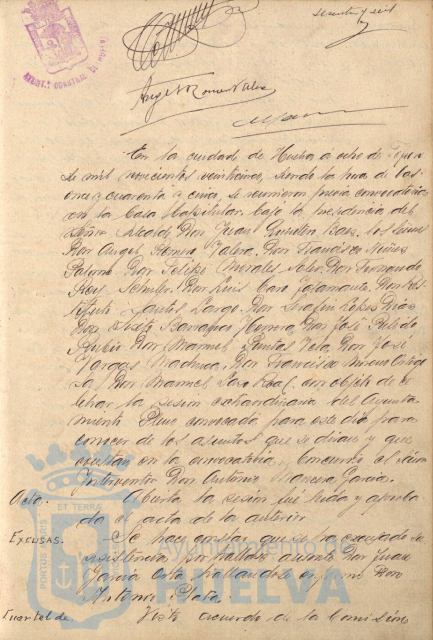 Angel Romero Valera
En la ciudad de Huelva á ocho de
de mil novecientos veinticinco, siendo la hora de las
once y cuarenta y cinco, se reunieron previa convocatoria
en la Casa Capitular bajo la presidencia del
Señor Alcalde Don Juan Quintero Baez los Señores
Don Angel Romero Valera, Don Francisco Nuñez
Palomo Don Felipe Morales Don Fernando
Rey Don Luis Caro Don
Santos Largo, Don Serafin Lopez Diaz
Don José Barragan Herrera, Don José Pulido
Rubio Don Manuel Puntas Vela, Don José
Vargas Machuca, Don Francisco Moreno Ortega
Don Manuel con objeto de ce
lebrar la sesion extraordinaria del Ayunta
miento Pleno convocada para este dia para
conocer de los asuntos que se dirán y que
constan en la convocatoria. Concurrió el Señor
Interventor Don Antonio García.
Acta. Abierta la sesion fué leida y aproba
da el acta de la anterior.
Excusas. Se hace constar que se ha excusado la
asistencia por hallarse ausente Don Juan
García Orta hallandose enfermo Don
Antonio Plata.
Cuartel de Visto acuerdo de la Comision
Ayuntamiento de
HUELVA
PORTUS MARIS ET TERRAE